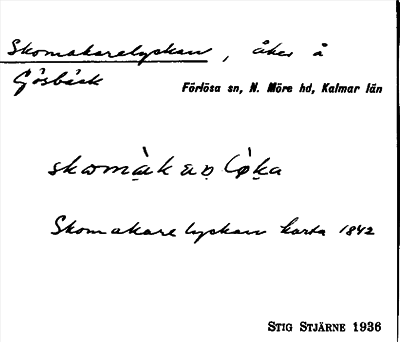 Skomakarelyckan, åker å
Gösbäck
Förlösa sn, N. Möre hd, Kalmar län
Skomakare lyckan karta 1842
STIG STJÄRNE 1936